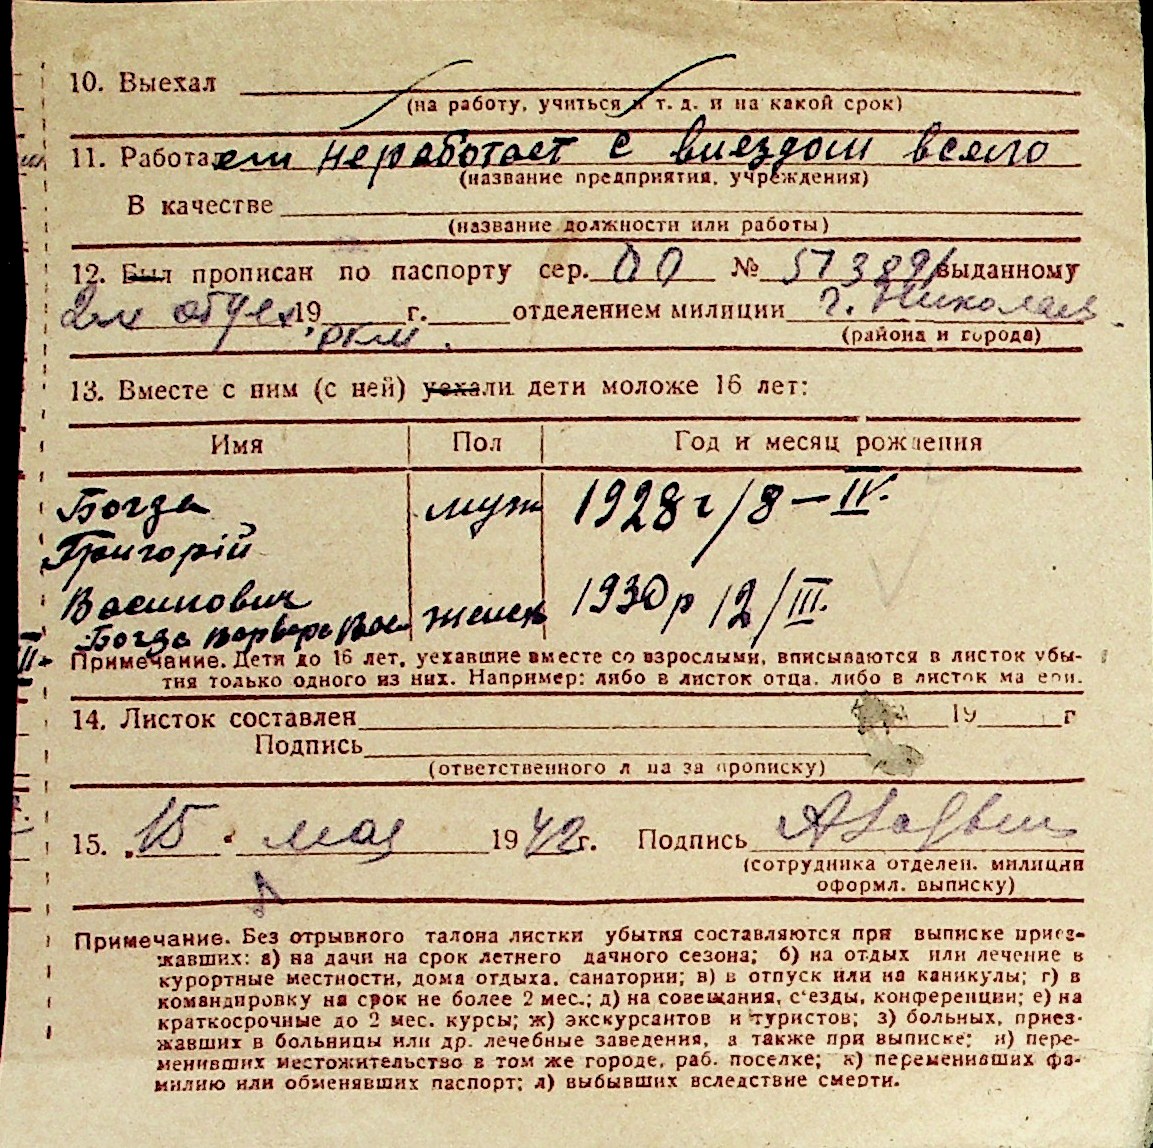 10. Выехал
(на работу, учиться и т. д. и на какой срок)
11. Работа неработает с виездом всего
(название предприятия, учреждения)
В качестве
(название должности или работы)
12. Был прописан по паспорту сер. № выданному
2м отдел. 19 г. отделением милиции г. Николаев
ркм. (района и города)
13. Вместе с ним (с ней) уехали дети моложе 16 лет:
Имя Пол Год и месяц рождения
Богза муж 1928 г/8-IV.
Григорій
Васильович 1930 р 12/III.
Богза Варвара Вас женск
Примечание. Дети до 16 лет, уехавшие вместе со взрослыми, вписываются в листок убы-
тия только одного из них. Например: либо в листок отца, либо в листок ма ери.
14. Листок составлен 19 г
Подпись
(ответственного л ца за прописку)
15. 15 мая 1942 г. Подпись
(сотрудника отделен. милиции
оформл. выписку)
Примечание. Без отрывного талона листки убытия составляются при выписке приез-
жавших: а) на дачи на срок летнего дачного сезона; б) на отдых или лечение в
курортные местности, дома отдыха, санатории; в) в отпуск или на каникулы; г) в
командировку на срок не более 2 мес.; д) на совещания, с'езды, конференции; е) на
краткосрочные до 2 мес. курсы; ж) экскурсантов и туристов; з) больных, приез-
жавших в больницы или др. лечебные заведения, а также при выписке: и) пере-
менивших местожительство в том же городе, раб. поселке; к) переменивших фа-
милию или обменявших паспорт; л) выбывших вследствие смерти.